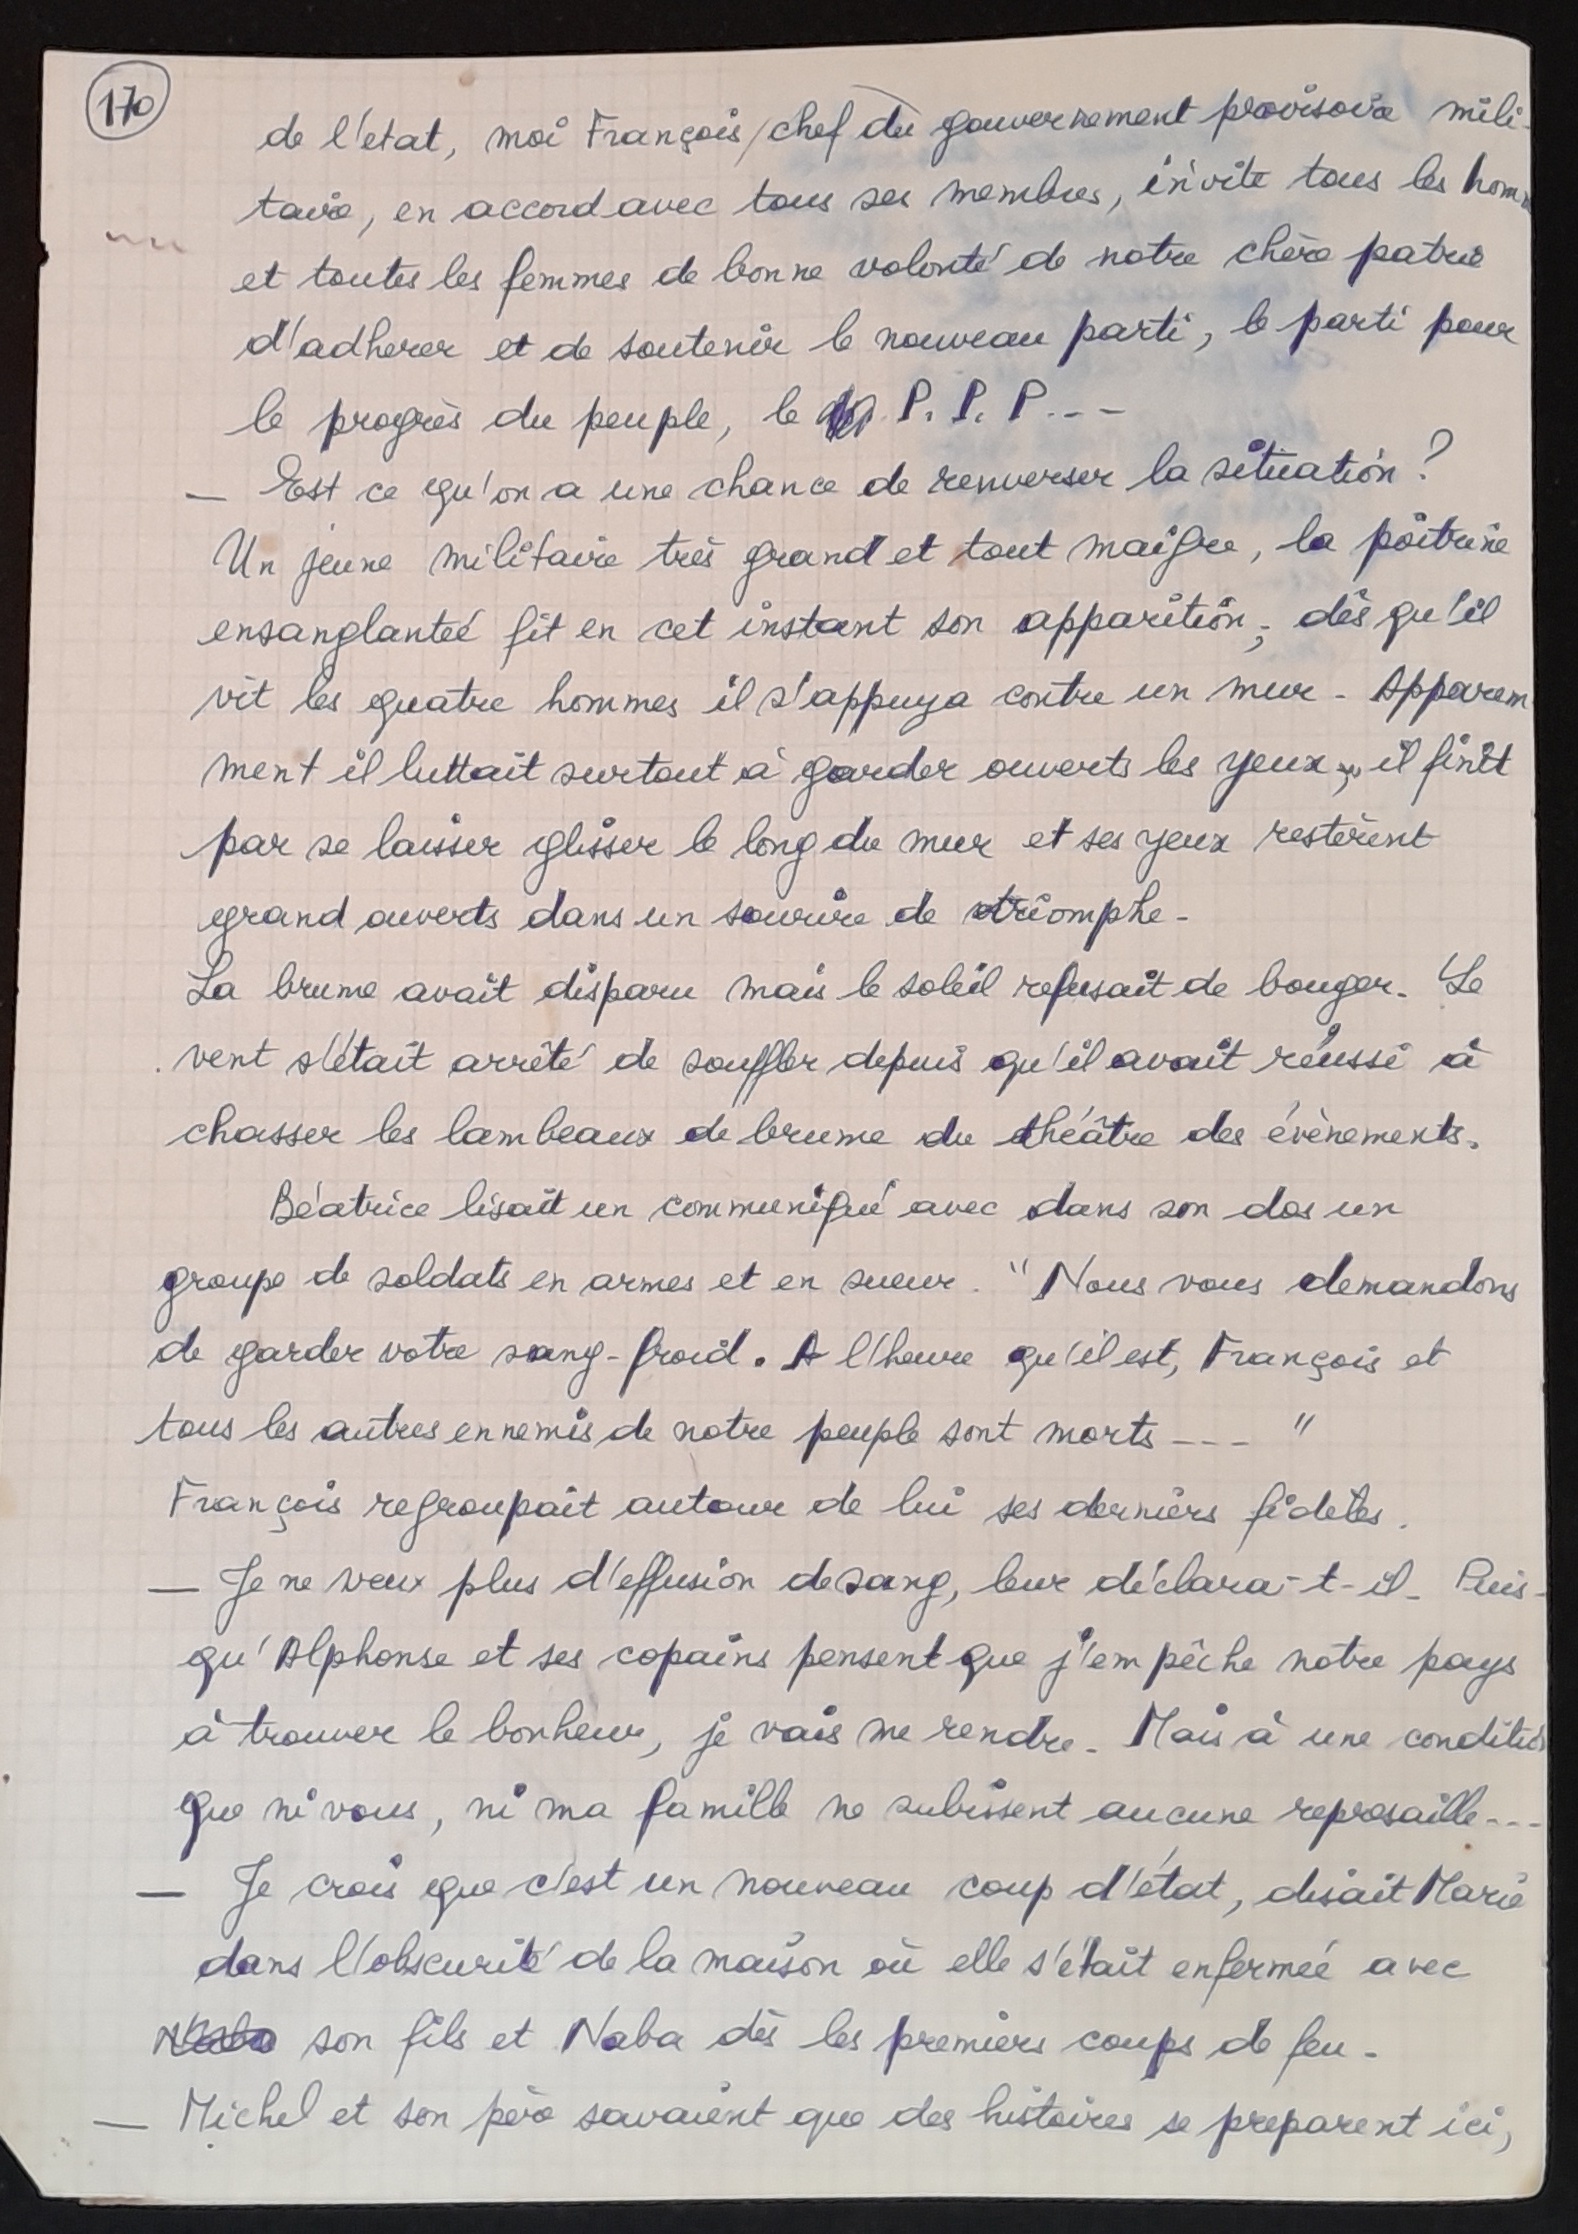 170
de l'etat, moi François, chef du gouvernement provisoire mili-
taire, en accord avec tous ses membres, invite tous les homm
et toutes les femmes de bonne volonté de notre chère patrie
d'adherer et de soutenir le nouveau parti, le parti pour
le progrès du peuple, le P. P. P...
— Est ce qu'on a une chance de renverser la situation ?
Un jeune militaire très grand et tout maigre, la poitrine
ensanglantée fit en cet instant son apparition ; dès qu'il
vit les quatre hommes il s'appuya contre un mur. Apparem
ment il luttait surtout à garder ouverts les yeux ; il finit
par se laisser glisser le long du mur et ses yeux restèrent
grand ouverts dans un sourire de triomphe.
La brume avait disparu mais le soleil refusait de bouger. Le
vent s'était arrêté de souffler depuis qu'il avait réussi à
chasser les lambeaux de brume du théâtre des évènements.
Béatrice lisait un communiqué avec dans son dos un
groupe de soldats en armes et en sueur. "Nous vous demandons
de garder votre sang-froid. A l'heure qu'il est, François et
tous les autres ennemis de notre peuple sont morts... "
François regroupait autour de lui ses derniers fidèles.
— Je ne veux plus d'effusion de sang, leur déclara-t-il. Puis-
qu'Alphonse et ses copains pensent que j'empêche notre pays
à trouver le bonheur, je vais me rendre. Mais à une condition
que ni vous, ni ma famille ne subissent aucune represaille...
— Je crois que c'est un nouveau coup d'état, disait Marie
dans l'obscurité de la maison où elle s'était enfermée avec
son fils et Naba dès les premiers coups de feu.
— Michel et son père savaient que des histoires se preparent ici,